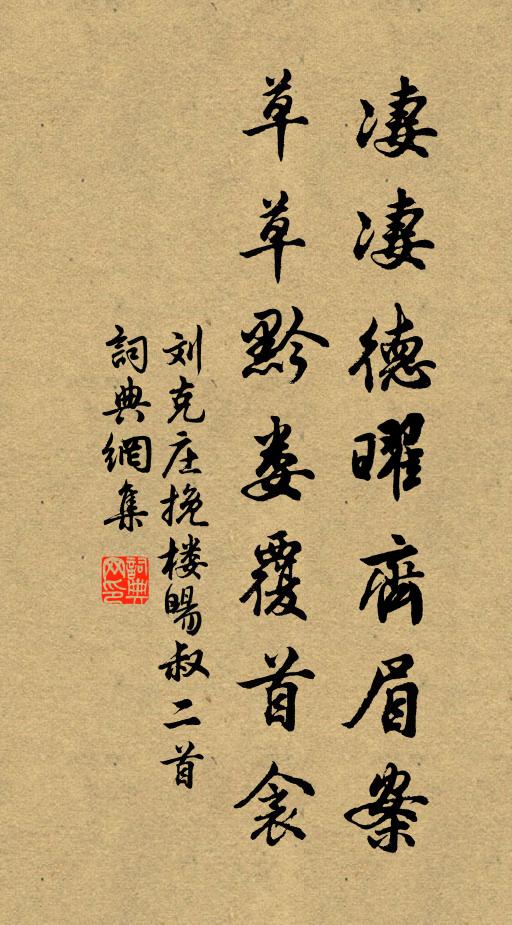 凄凄德曜齊眉案
草草黔娄覆首衾
刘克庄挽楼賜叔二首
詞典網集
詞典网印